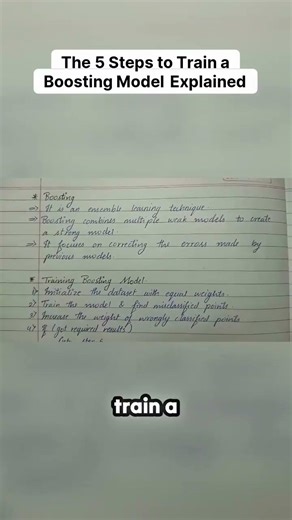 The 5 Steps to Train a
Boosting Model Explained
* Boosting
⇒ It is an ensemble learning technique
⇒ Boosting combines multiple weak models to create
a strong model
⇒ It focuses on correcting the errors made by
previous models
* Training Boosting Model
1) Initialize the dataset with equal weights.
2) Train the model & find misclassified points
3) Increase the weight of wrongly classified points
4) If (got required results)
train a